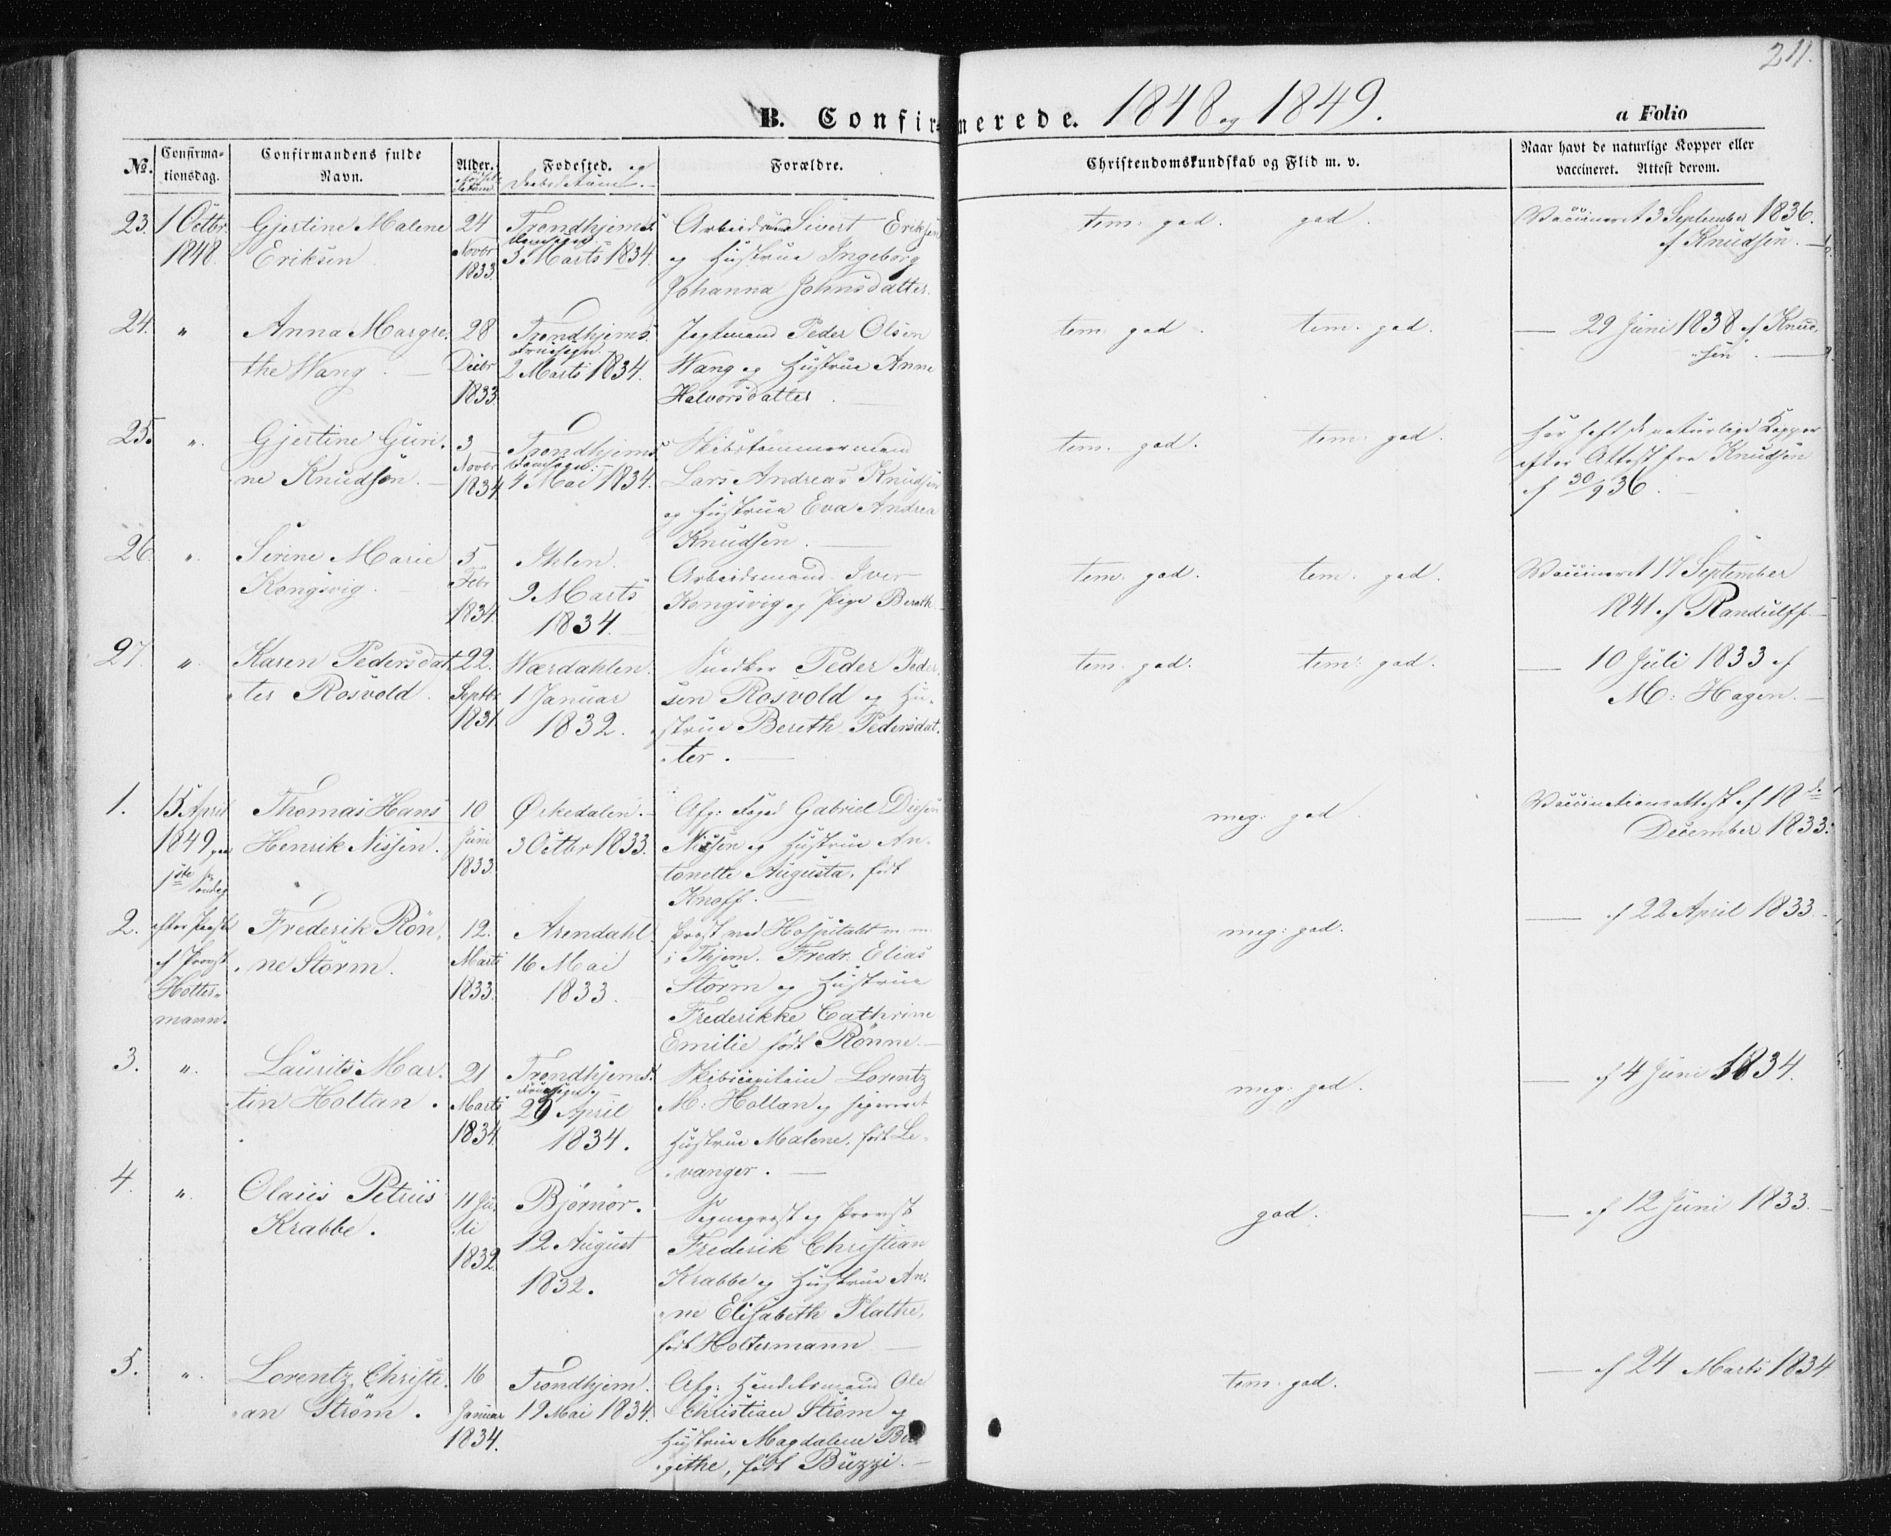 211.
B. Confirmerede. 1848 og 1849.
a Folio
No.
Confirmationsdag.
Confirmandens fulde Navn.
Alder.
Fødested. og Daabsdatum.
Forældre.
Christendomskundskab og Flid m. v.
Naar havt de naturlige Kopper eller
vaccineret. Attest derom.
23. 1 Octbr 1848
Gjertine Malene
Eriksen
24 Novbr 1833.
Trondhjems
Domsogn
3 Marts 1834.
Arbeidsmd Sivert Eriksen
og Hustrue Ingeborg
Johanna Johnsdatter.
tem. god. god.
Vaccineret 3 September 1836.
af Knudsen.
24. "
Anna Margre-
the Wang.
28 Decbr 1833
Trondhjems
Fruesogn.
2 Marts 1834.
Jagtmand Peder Olsen
Wang og Hustrue Anne
Halvorsdatter.
tem. god. tem. god.
— 29 Juni 1838 af Knud-
sen.
25. "
Gjertine Guri-
ne Knudsen.
3 Novbr 1834
Trondhjems
Domsogn.
4 Mai 1834.
Skibstømmermand
Lars Andreas Knudsen
og Hustrue Eva Andrea
Knudsen.
tem. god. tem. god.
har haft de naturlige Kopper
efter Attest fra Knudsen
af 30/9 36.
26. "
Serine Marie
Kongsvig.
5 Febr 1834.
Ihlen.
9 Marts
1834.
Arbeidsmand Iver
Kongsvig og Pige Bereth.
tem. god. tem. god.
Vaccineret 17 September
1841 af Randulff.
27. "
Karen Pedersdat-
ter Rosvold.
22. Septbr 1831
Værdahlen.
1 Januar
1832.
Snedker Peder Peder-
sen Rosvold og Hu-
strue Bereth Pedersdat-
ter.
tem. god. tem. god.
— 10 Juli 1833 af
M. Hagen.
1. 15 April 1849 paa 1ste Søndag
Thomas Hans
Henrik Nissen.
10 Juni 1833
Ørkedalen.
3 Octbr 1833.
Afg. Foged Gabriel
Nissen og Hustrue An-
tonette Augusta, født
Knoff.
meg. god.
Vaccinationsattest af 18de
December 1833.
2. efter Paaske af Provst Holtermann.
Frederik Rön-
ne Storm.
12. Marts 1833.
Arendahl.
16 Mai
1833.
Præst ved Hospitalet m. m.
i Thjem. Fredr. Elias
Storm og Hustrue
Frederikke Cathrine
Emilie født Rönne.
meg. god.
— af 22 April 1833.
3. "
Laurits Mar-
tin Holtan.
21 Marts 1834.
Trondhjems
Fruesogn
29 April
1834.
Skibscapitain Lorentz
M. Holtan og
Hustrue Malene, født Le-
vanger.
meg. god.
— af 4 Juni 1834.
4. "
Olaus Petrus
Krabbe.
11 Ju-
li
1832.
Bjørnør.
12 August
1832.
Sognepræst og Provst
Frederik Christian
Krabbe og Hustrue An-
ne Elisabeth Plathe,
født Holtermann
god.
— af 12 Juni 1833.
5. "
Lorentz Christi-
an Strøm.
16 Januar 1834.
Trondhjem.
19 Mai 1834.
Afg. Handelsmand Ole
Christian Strøm og
Hustrue Magdalene Bir-
githe, født Buzzi.
tem. god.
— af 24 Marts 1834